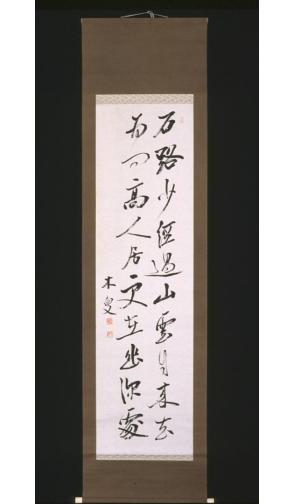 石路少經過山雲自来去
為問高人居更在幽深處
木叟